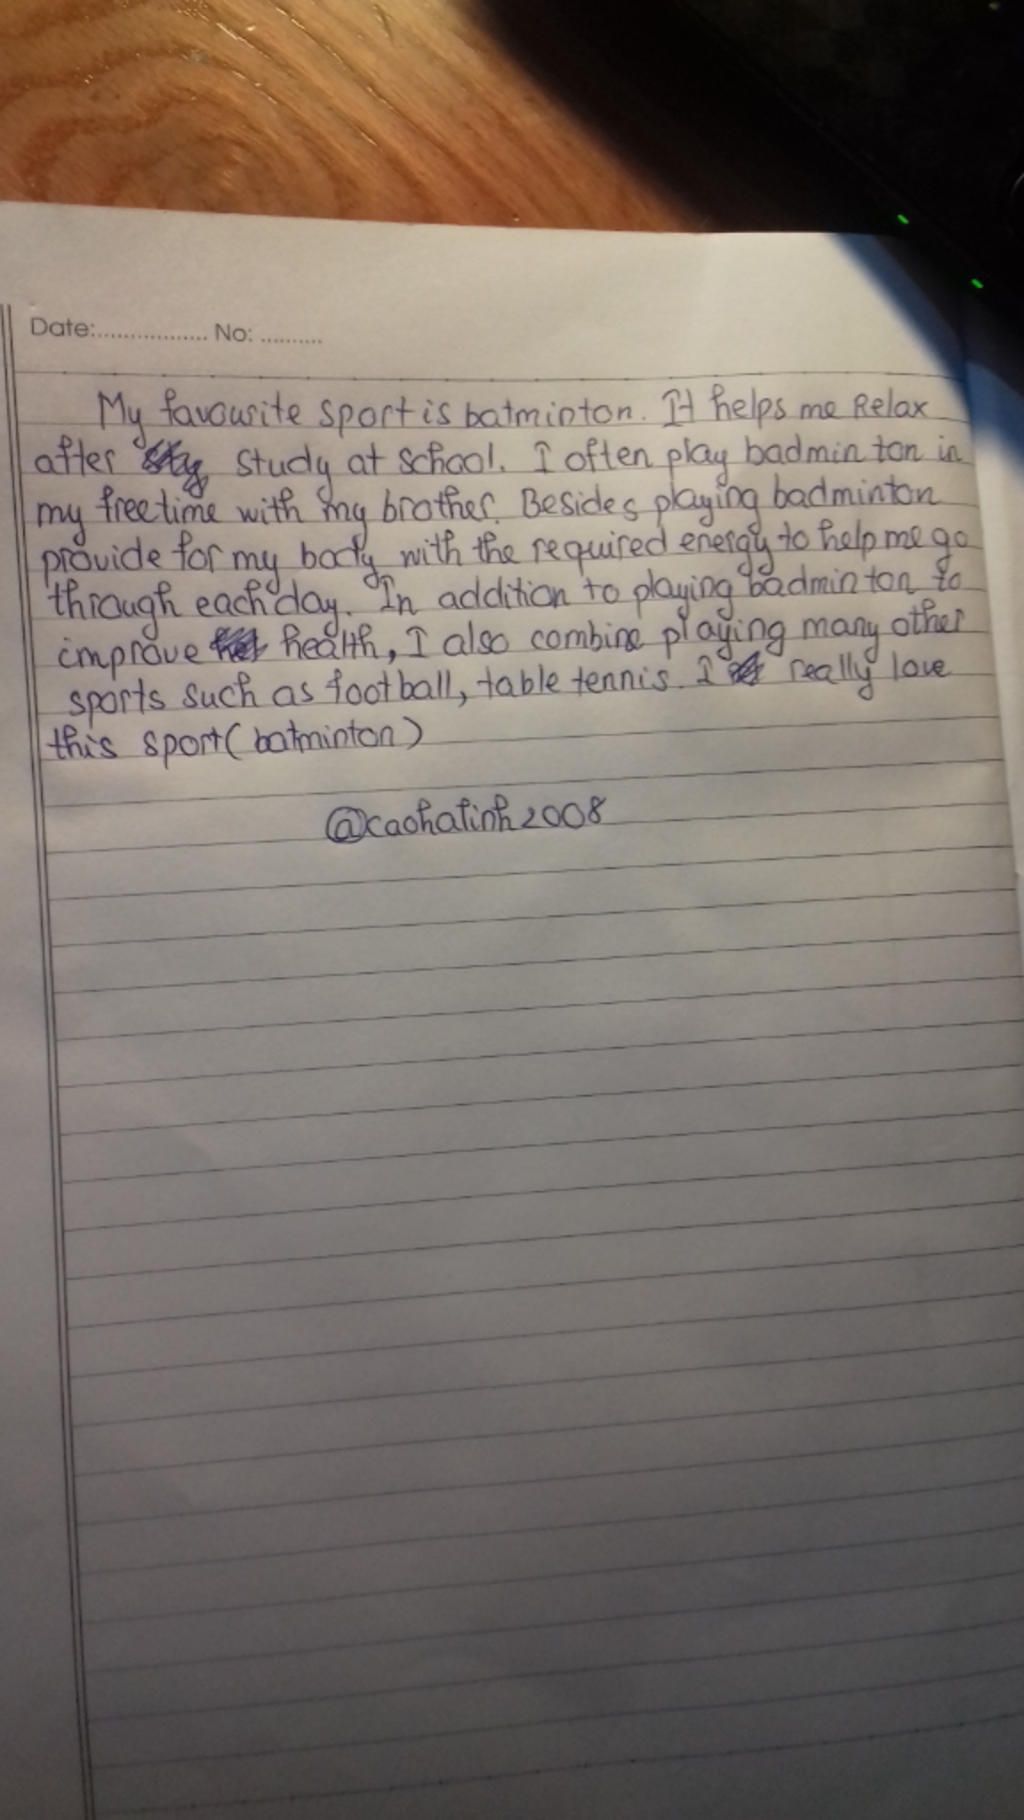 Date:................. No: ..........
My favourite sport is batminton. It helps me Relax
after study at school. I often play badminton in
my freetime with my brother. Besides playing badminton
provide for my body with the required energy to help me go
through each day. In addition to playing badminton to
improve health, I also combine playing many other
sports such as football, table tennis. I really love
this sport (batminton)
@caohatinh2008